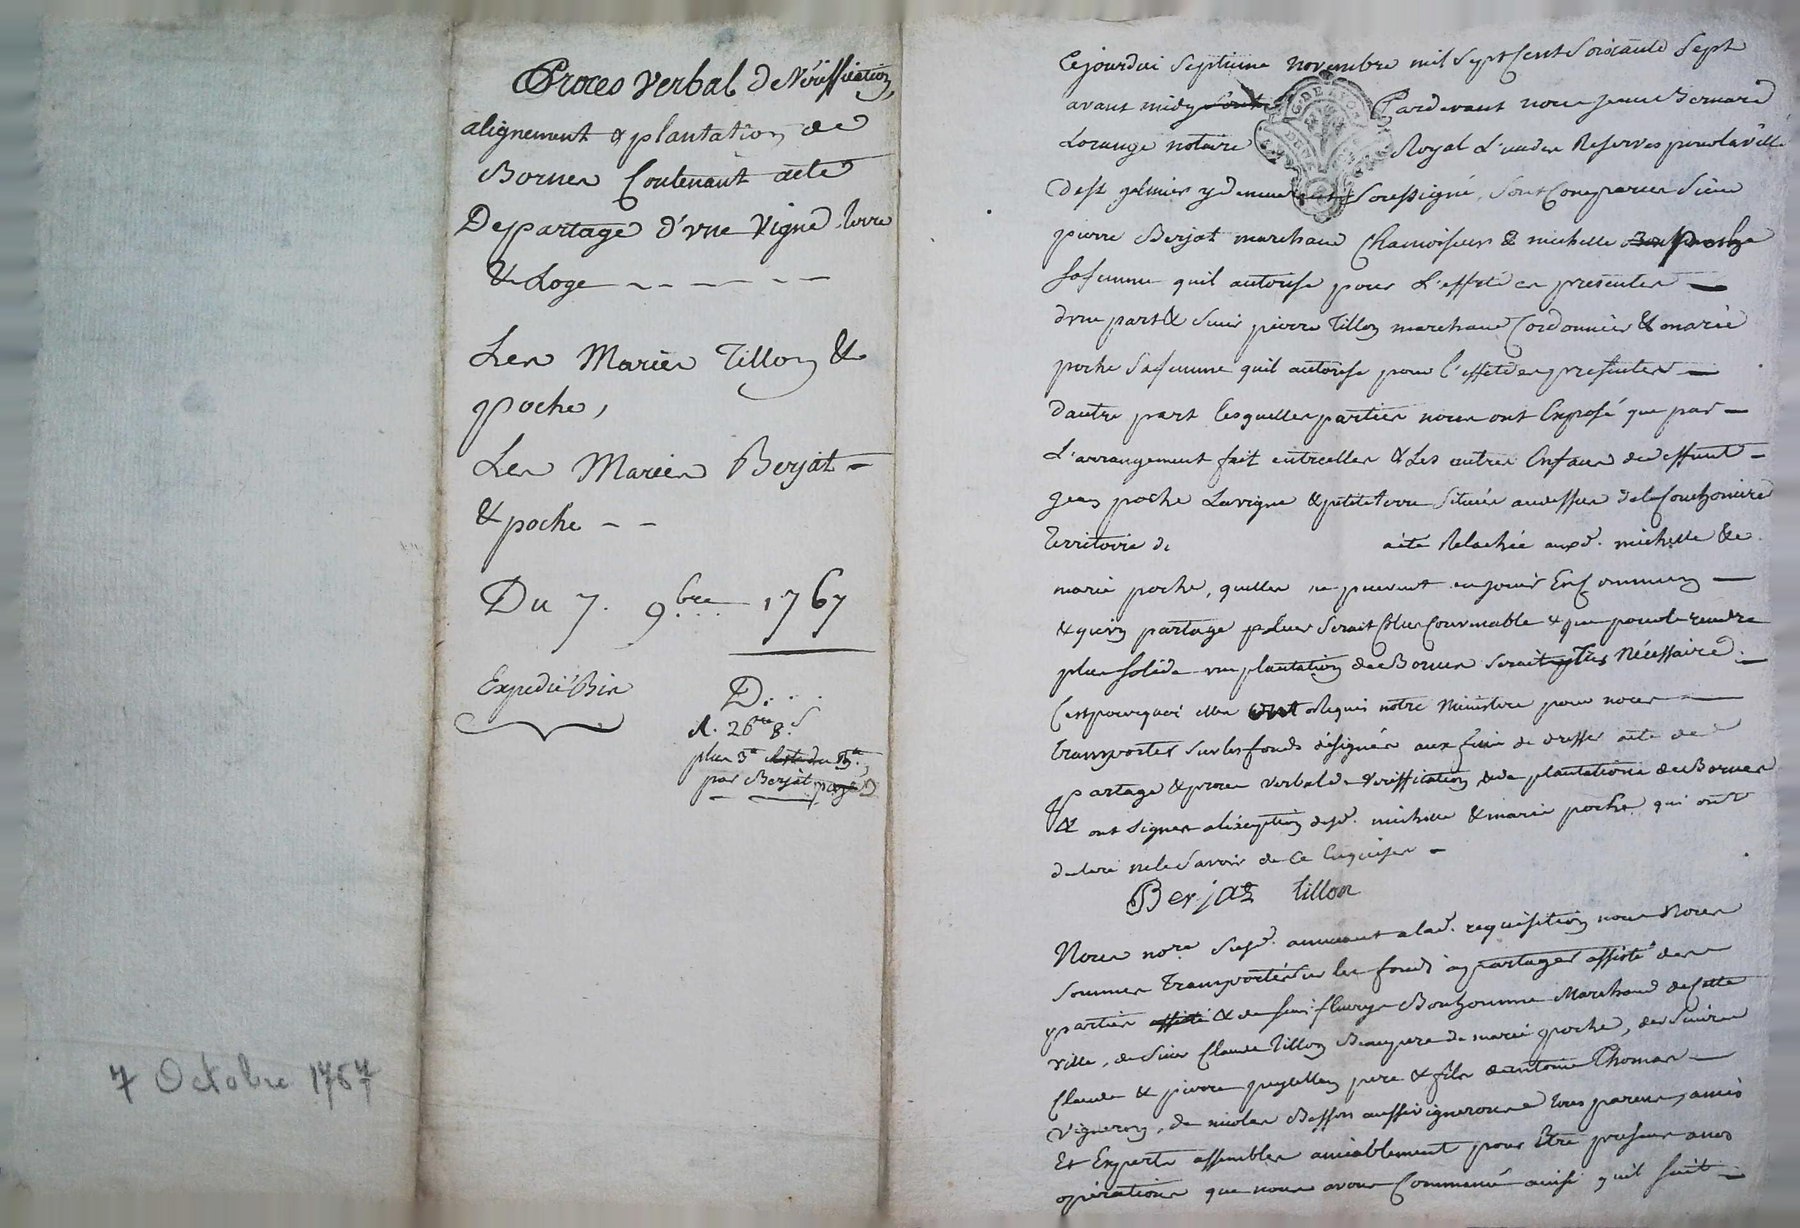 Proces Verbal de Vériffication,
alignement & plantation de
Bornes Contenant acte
De partage d'vne Vigne, terre
& Loge
Les Mariés Tillon &
poche,
Les Mariés Berjat
& poche
Du 7. 9bre 1767
Expedié Bin
D.
d. 26 8.s
plus 3
par Berjat
7 Octobre 1767
Cejourdui septieme novembre mil sept Cent Soixante Sept
avant midy Pardevant nous jean Bernard
Lorange notaire Royal L'un des Reservés pour la ville
de st galmier y demeurant Soussigné, Sont Comparus Sieur
pierre Berjat marchand Chamoiseur & michelle poche
sa femme quil autorise pour L'effet des presentes
d'vne part & Sieur pierre Tillon marchand Cordonnier & marie
poche Sa femme quil autorise pour l'effet des presentes
d'autre part lesquelles parties nous ont Exposé que par
L'arrangement fait entr'elles & Les autres Enfans de deffunt
jean poche La vigne & petite terre Située au dessus de la
Territoire de a été Relachée auxd. michelle &
marie poche, quelles ne peuvent en jouir En Commun
& qu'un partage plus Serait plus Convenable & que pour le rendre
plus solide une plantation de Bornes serait très Nécéssaire.
C'est pourquoi elles ont Requis notre Ministere pour nous
transporter sur les fonds désignés aux fins de dresser acte de
partage & procès verbal de vériffication & de plantation de Bornes
& ont signés à l'exeption desd. michelle & marie poche qui ont
declaré ne le Savoir de Ce Enquises
Berjat Tillon
Nous no.re Susd. annuant à lad. requisition nous Nous
sommes transportés Sur les fonds à partager assisté des
parties assisté & de sieur fleury Bonhomme Marchand de Cette
ville, de Sieur Claude Tillon Beaupere de marie poche, de Sieurs
Claude & pierre père & fils d'antoine Thomas
Vigneron, de nicolas Besson aussi vigneron tous parens, amis
Et Experts assemblés amiablement pour Etre présens à nos
opérations que nous avons Commencé ainsi quil suit